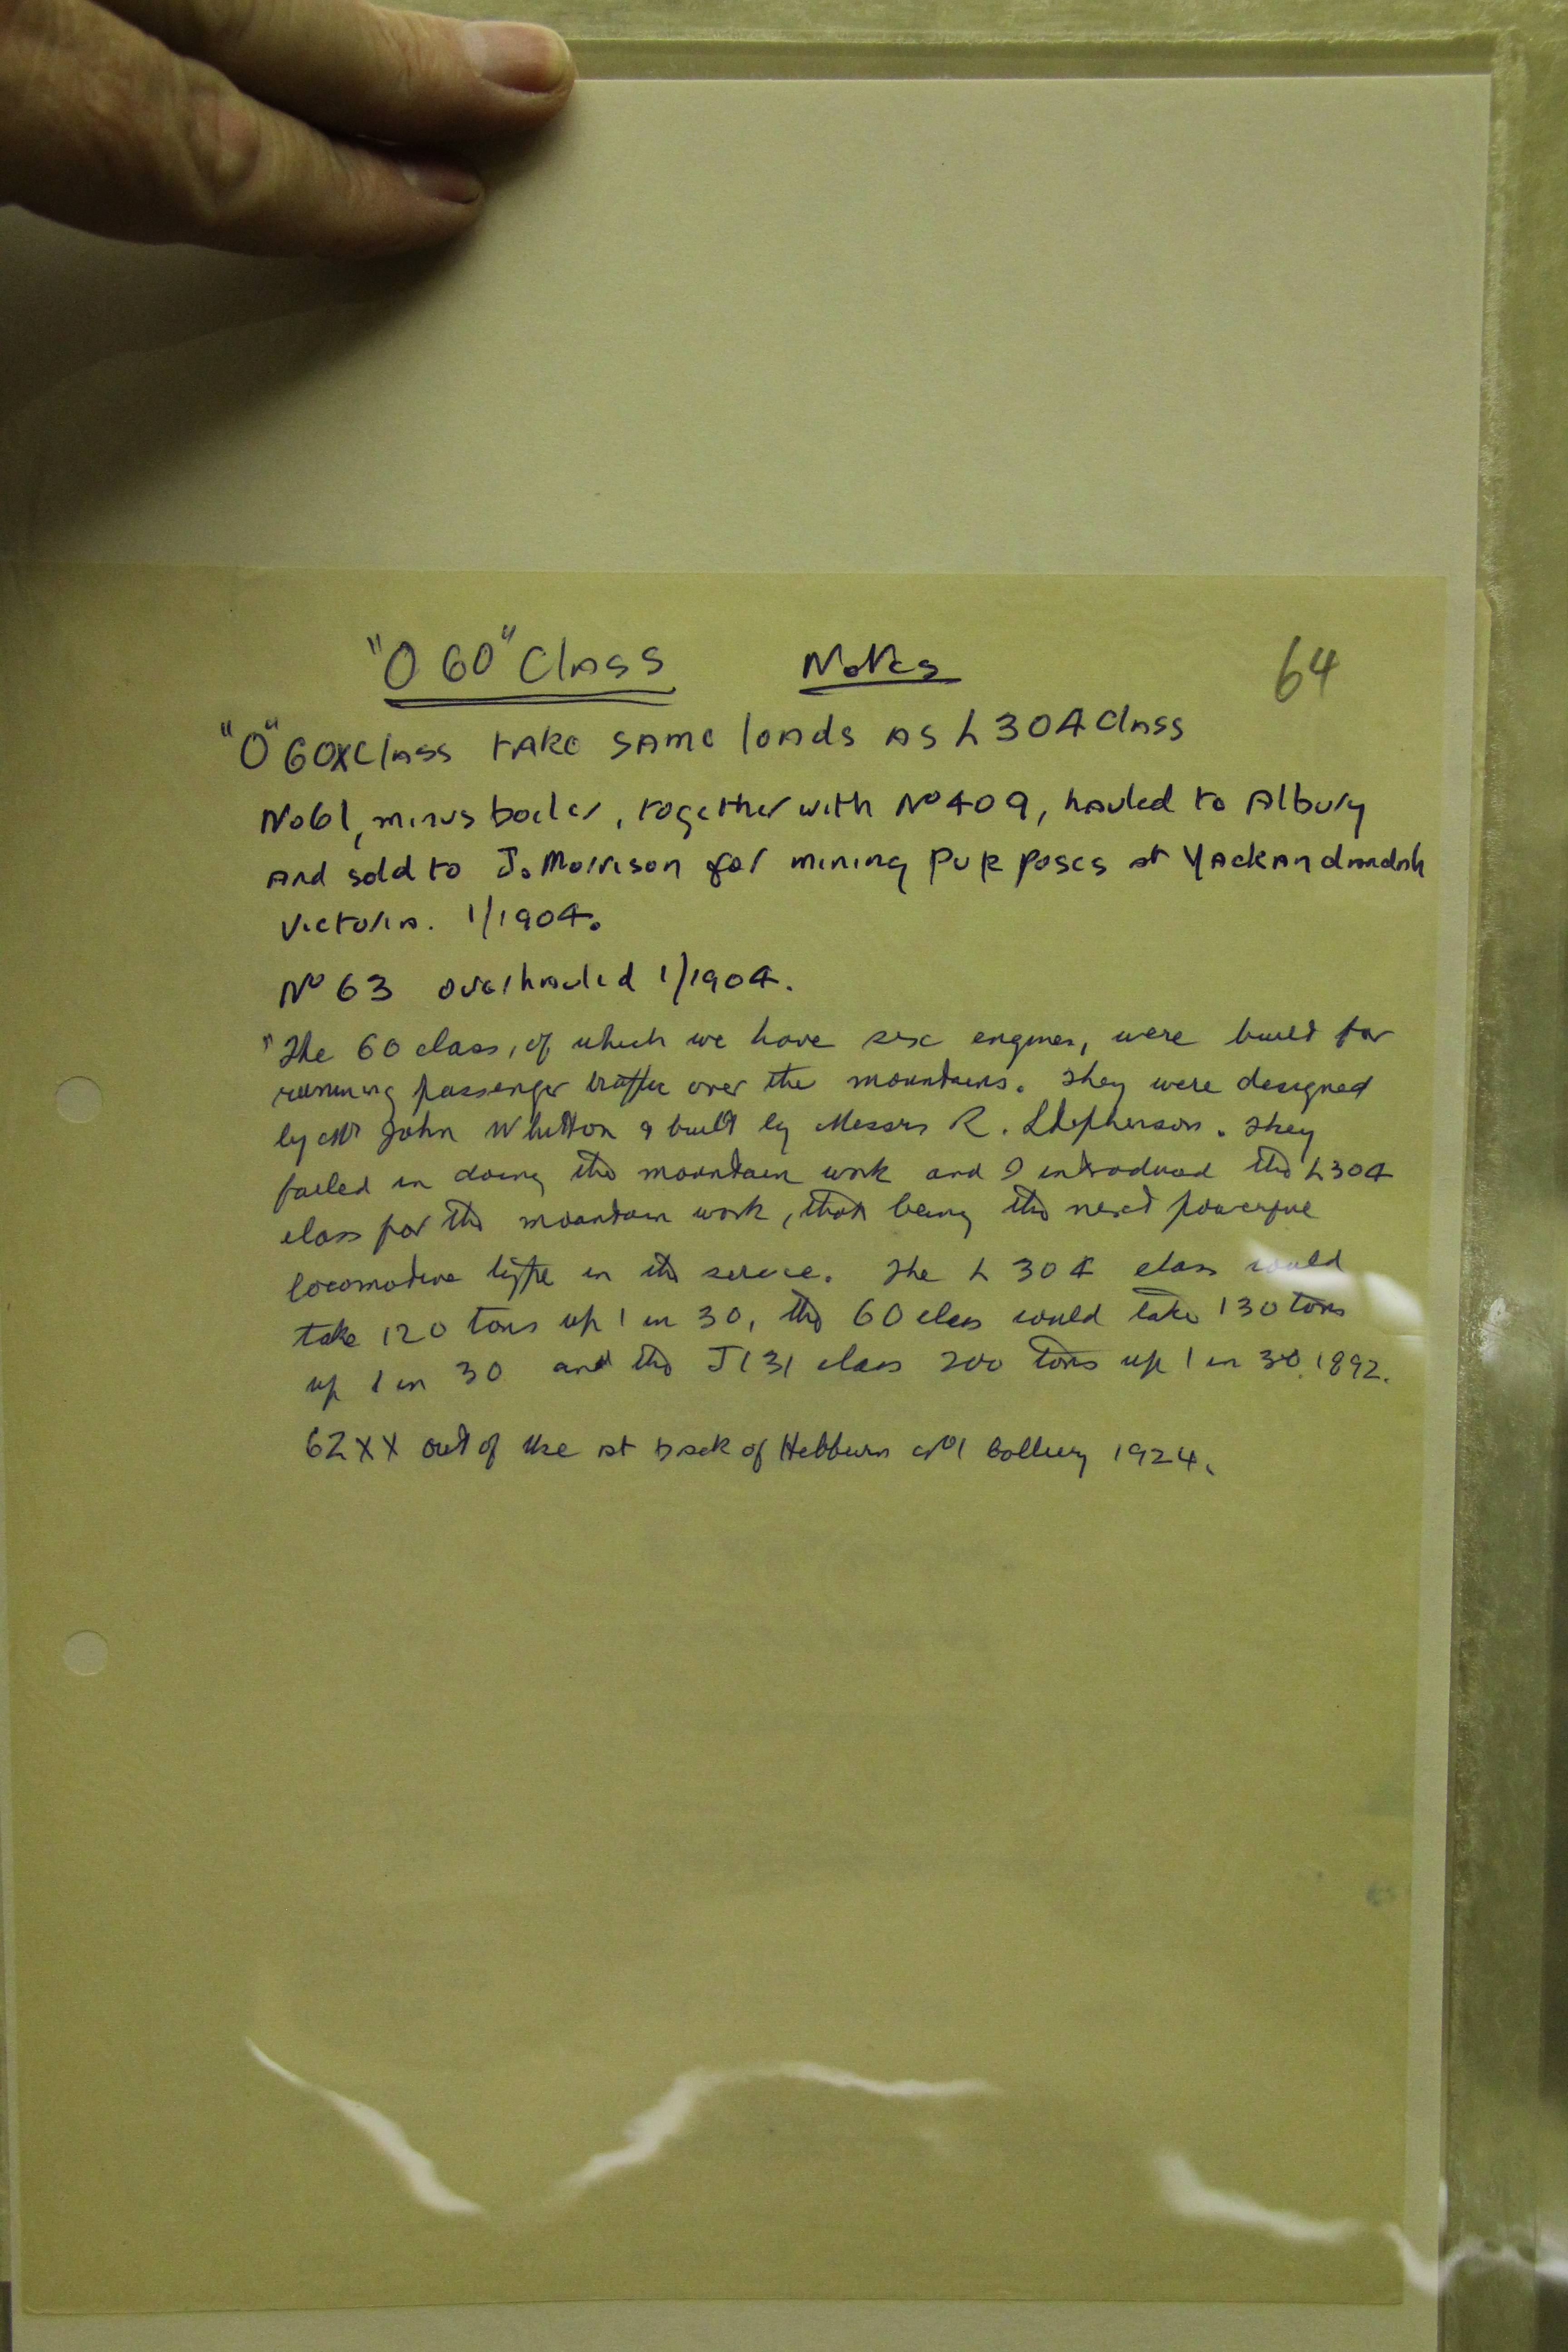 "O 60" Class Notes 64
"O" 60X Class take same loads as L304 Class
No61, minus boiler, together with No 409, hauled to Albury
and sold to J. Morrison for mining purposes at Yackandandah
Victoria. 1/1904.
No 63 overhauled 1/1904.
"The 60 class, of which we have six engines, were built for
running passenger traffic over the mountains. They were designed
by Mr John Whitton & built by Messrs R. Stepherson. They
failed in doing the mountain work and I introduced the L304
class for the mountain work, that being the next powerful
locomotive type in the service. The L 304 class would
take 120 tons up 1 in 30, the 60 class would take 130 tons
up 1 in 30 and the J131 class 200 tons up 1 in 30. 1892.
62XX out of use at back of Hebburn No1 Colliery 1924.